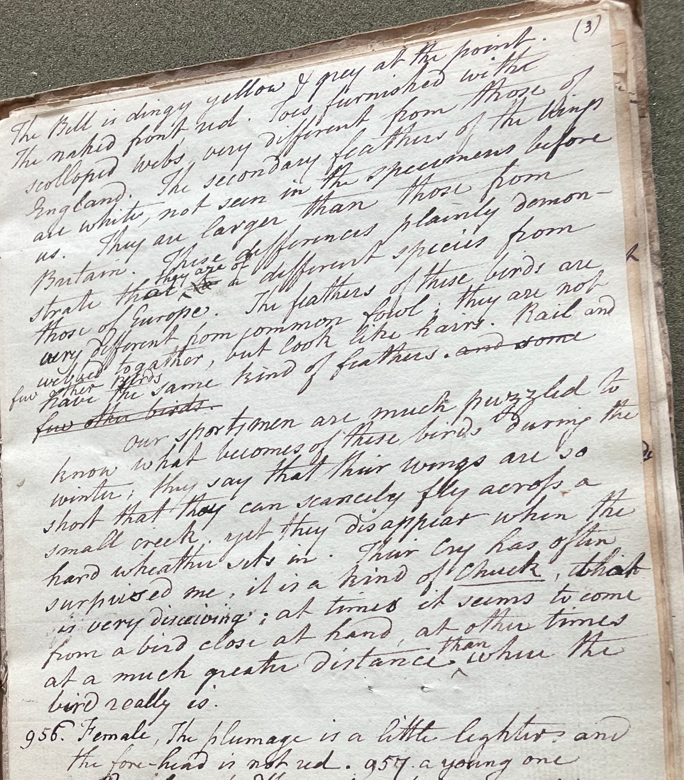 (3)
The Bill is dingy yellow & grey at the point.
The naked front red. Toes furnished withe
scolloped webs, very different from those of
England. The secondary feathers of the wings
are white, not seen in the specimens before
us. They are larger than those from
Britain. These differences plainly demon-
strate that they are of a different species from
those of Europe. The feathers of these birds are
very different from common fowl; they are not
webbed togather, but look like hairs. Rail and
few other birds
have the same kind of feathers. and some
few other birds.
Our sportsmen are much puzzled to
know what becomes of these birds during the
winter; they say that their wings are so
short that they can scarcely fly across a
small creek; yet they disappear when the
hard wheather sets in. Their Cry has often
surprised me; it is a kind of Chuck, that
is very disceiving; at times it seems to come
from a bird close at hand, at other times
at a much greater distance than where the
bird really is.
956. Female, The plumage is a little lighter and
the fore-head is not red. 957. a young one